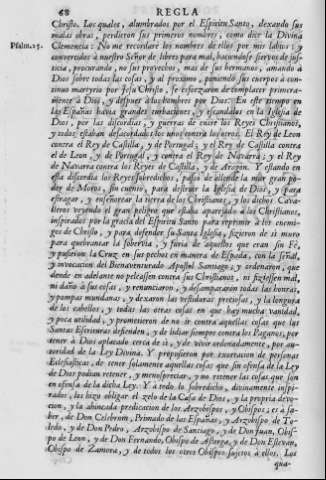 68 REGLA
Christo. Los quales, alumbrados por el Espiritu Santo, dexando sus
malas obras, perdieron sus primeros nombres, como dice la Divina
Psalm. 15. Clemencia: No me recordaré los nombres de ellos por mis labios: y
convertidos à nuestro Señor de libres para mal, haciendose siervos de jus-
ticia, procurando, no sus provechos, mas de sus hermanos, amando à
Dios sobre todas las cosas, y al proximo, poniendo sus cuerpos à conti-
nuo martyrio por Jesu Christo, se esforzaron de complacer primera-
mente à Dios, y despues à los hombres por Dios. En este tiempo en
las Españas havia grandes turbaciones, y escandalos en la Iglesia de
Dios, por las discordias, y guerras de entre los Reyes Christianos,
y todos estaban desacordados los unos contra los otros. El Rey de Leon
contra el Rey de Castilla, y de Portugal; y el Rey de Castilla contra
el de Leon, y de Portugal, y contra el Rey de Navarra; y el Rey
de Navarra contra los Reyes de Castilla, y de Aragon. Y estando en
esta discordia los Reyes sobredichos, passò de allende la mar gran po-
der de Moros, sin cuento, para destruir la Iglesia de Dios, y para
estragar, y enseñorear la tierra de los Christianos, y los dichos Cava-
lleros veyendo el gran peligro que estaba aparejado à los Christianos,
inspirados por la gracia del Espiritu Santo para reprimir à los enemi-
gos de Christo, y para defender su Santa Iglesia, fizieron de si muro
para quebrantar la sobervia, y furia de aquellos que eran sin Fé,
y pusieron la Cruz en sus pechos en manera de Espada, con la señal,
y invocacion del Bienaventurado Apostol Santiago; y ordenaron, que
dende en adelante no peleassen sus Christianos, ni fiziessen mal,
ni daño à sus cosas, y renunciaron, y desampararon todas las honras,
y pompas mundanas, y dexaron las vestiduras preciosas, y la longura
de los cabellos, y todas las otras cosas en que hay mucha vanidad,
y poca utilidad, y prometieron de no ir contra aquellas cosas que las
Santas Escrituras defienden, y de lidiar siempre contra los Paganos, por
tener à Dios aplacado cerca de si, y de vivir ordenadamente, por au-
toridad de la Ley Divina. Y propusieron por exortacion de personas
Eclesiasticas, de tener solamente aquellas cosas que sin ofensa de la Ley
de Dios podian retener, y menospreciar, y no retener las cosas que son
en ofensa de la dicha Ley: Y à todo lo sobredicho, divinamente inspi-
rados, les hizo obligar el zelo de la Casa de Dios, y la propria devo-
cion, y la ahincada predicacion de los Arzobispos, y Obispos; es à sa-
ber, de Don Celebrom, Primado de las Españas, y Arzobispo de To-
ledo, y de Don Pedro, Arzobispo de Santiago, y de Don Juan, Obis-
po de Leon, y de Don Fernando, Obispo de Astorga, y de Don Estevan,
Obispo de Zamora, y de todos los otros Obispos sujetos à ellos. Los
qua-